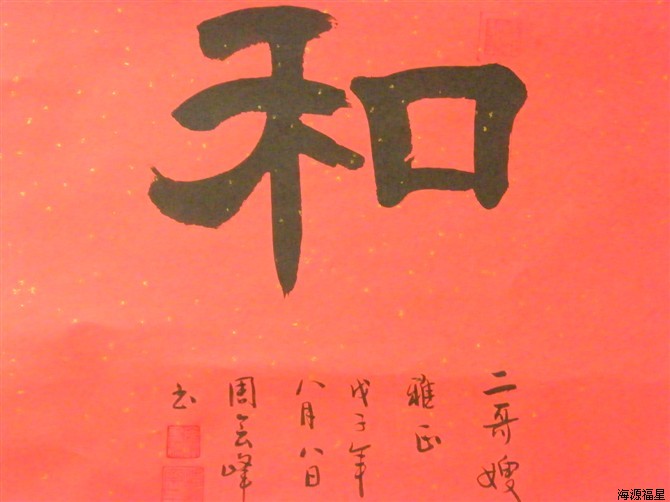 和
二哥嫂
雅正
戊子年
八月八日
周会峰
书
海源福星